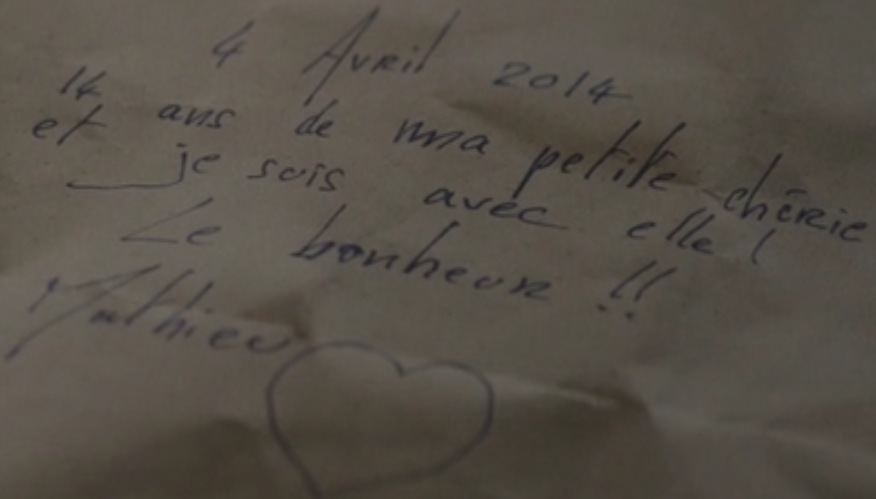 4 Avril 2014
14 ans de ma petite chérie
et je suis avec elle !
Le bonheur !!
Mathieu